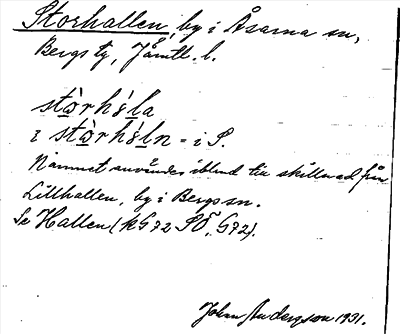 Storhallen, by i Åsarna sn,
Bergs tg, Jämtl. l.
stòrhɛ́la
i stòrhɛ́ln = i S.
Namnet användes ibland till skillnad från
Lillhallen, by i Bergs sn.
Se Hallen (kG72 SÖ, G72).
Johan Anderson 1931.